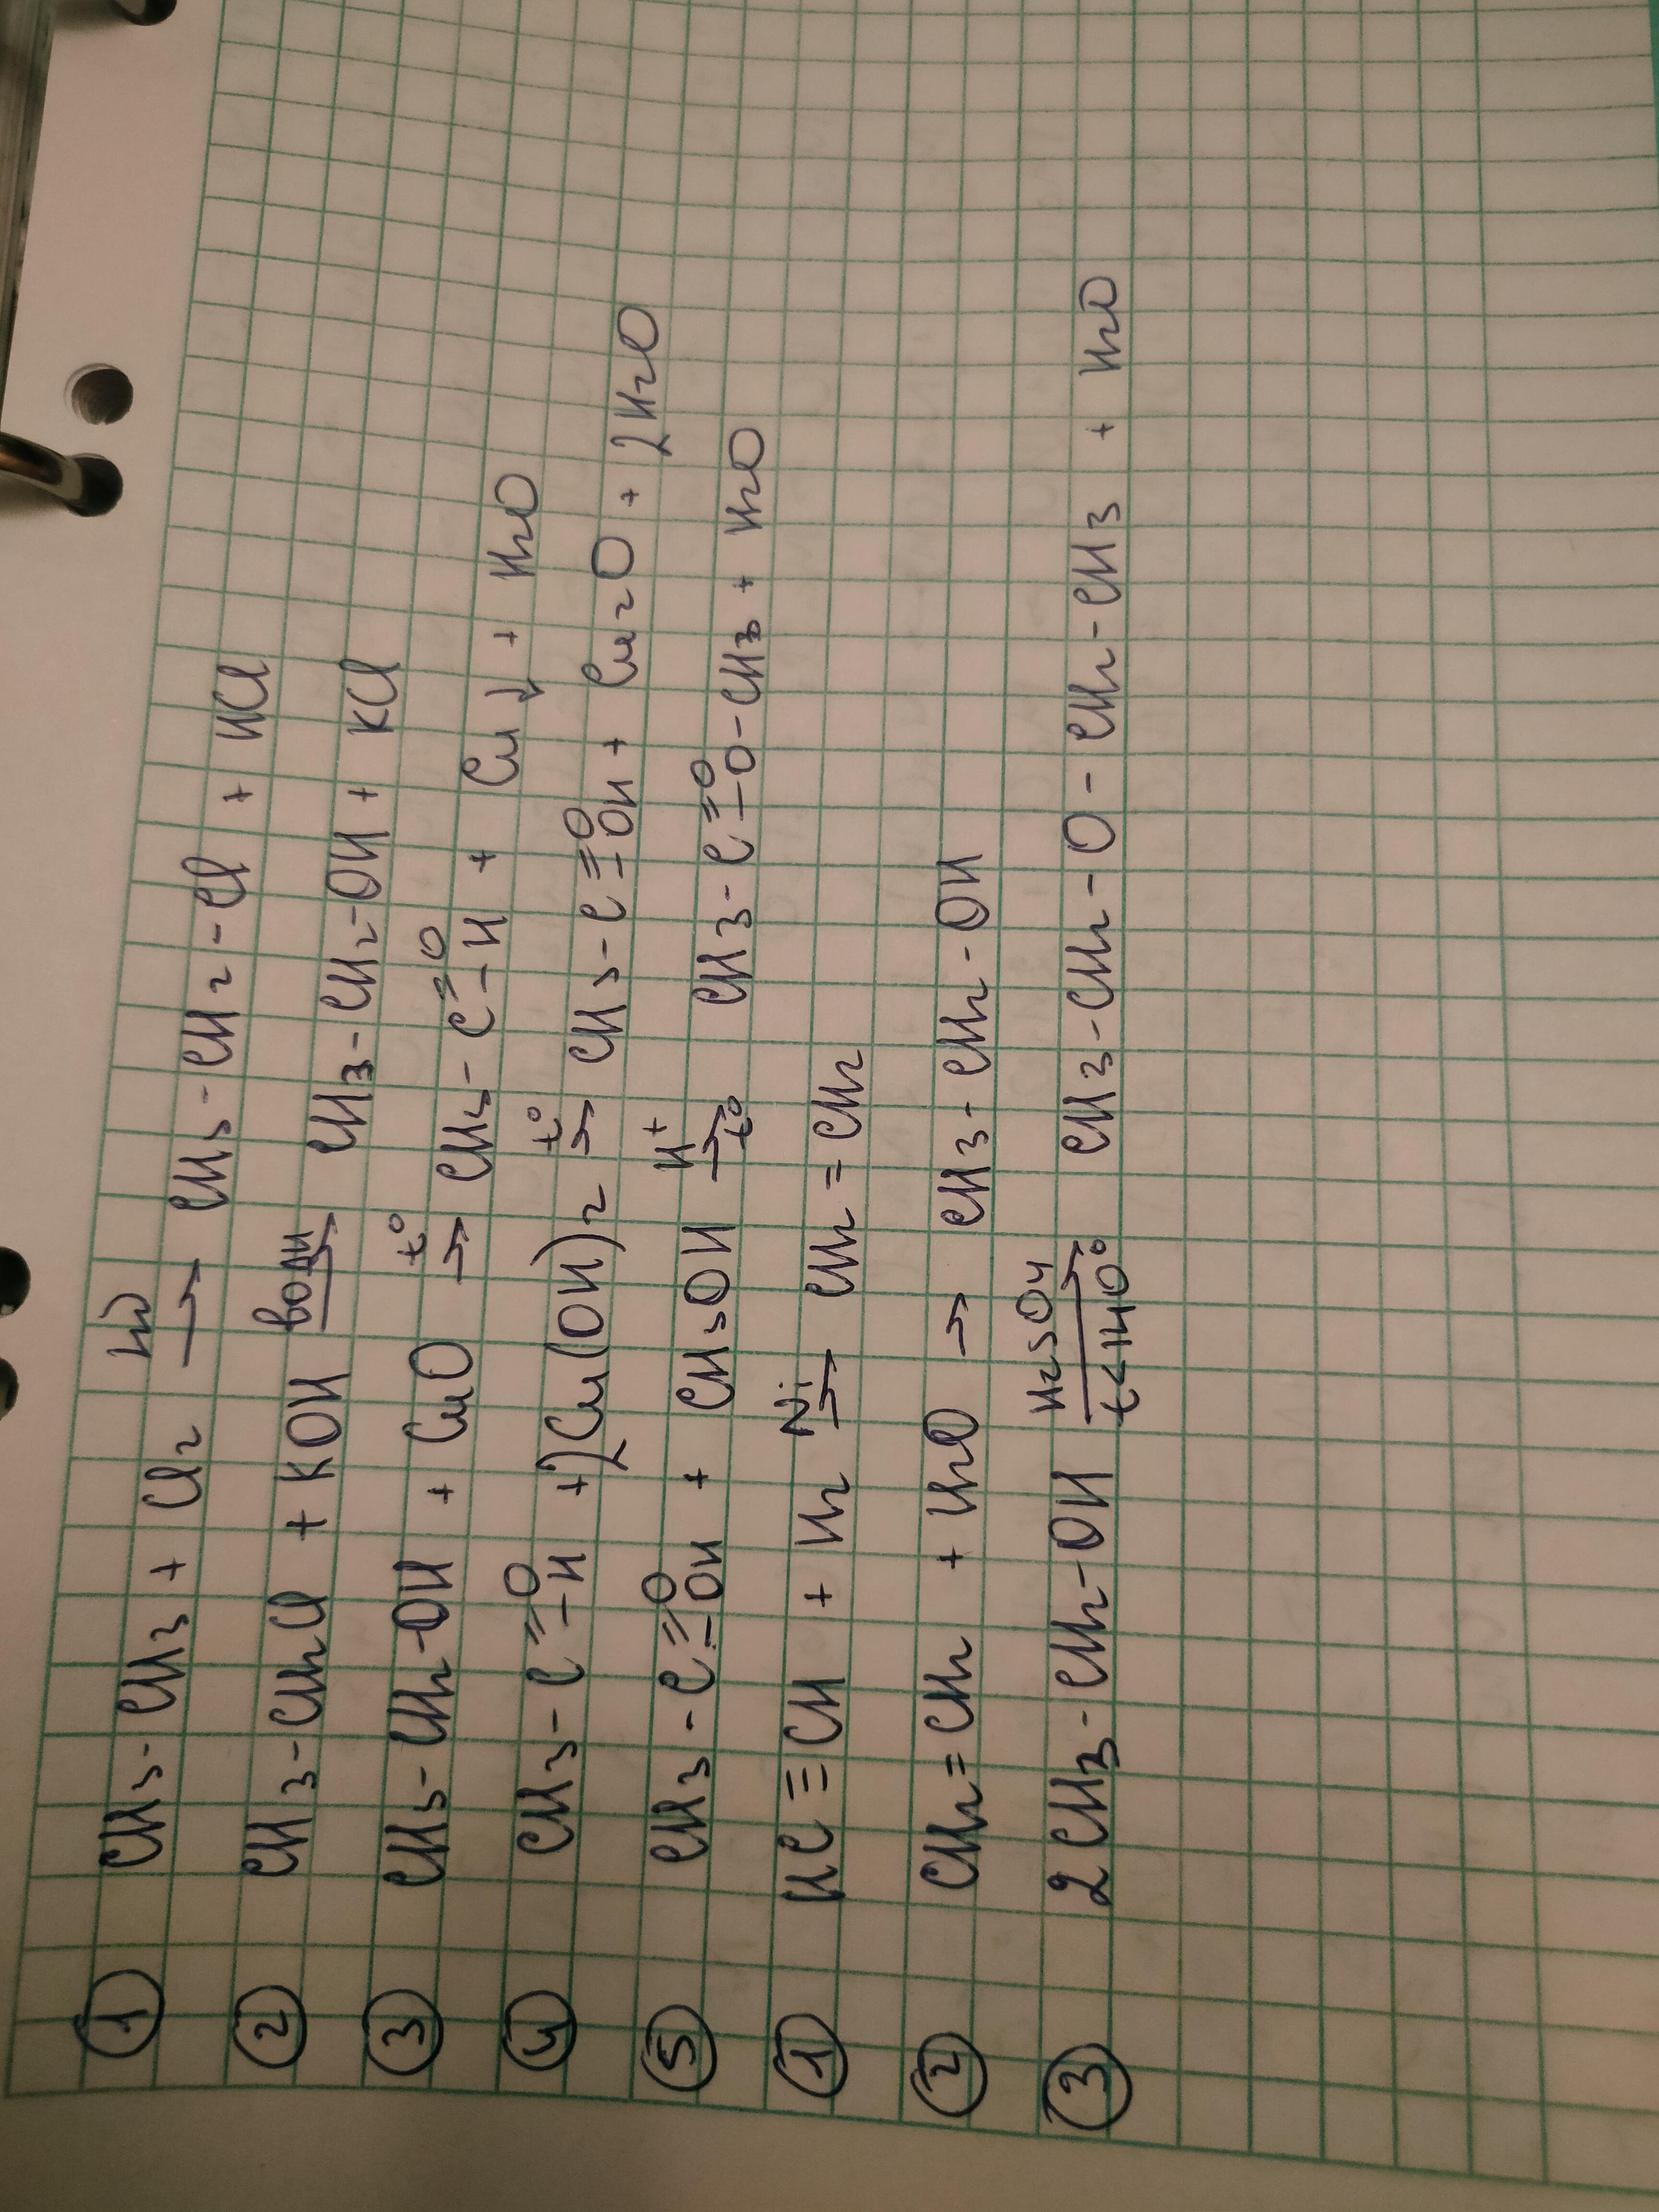 ① CH3-CH3 + Cl2 hν → CH3-CH2-Cl + HCl
② CH3-CH2Cl + KOH водн → CH3-CH2-OH + KCl
③ CH3-CH2-OH + CuO t° → CH3-C=O-H + Cu↓ + H2O
④ CH3-C=O-H + 2Cu(OH)2 t° → CH3-C=O-OH + Cu2O + 2H2O
⑤ CH3-C=O-OH + CH3OH H+ → t° CH3-C=O-O-CH3 + H2O
① HC≡CH + H2 Ni → CH2=CH2
② CH2=CH2 + H2O → CH3-CH2-OH
③ 2CH3-CH2-OH H2SO4 → t<140° CH3-CH2-O-CH2-CH3 + H2O